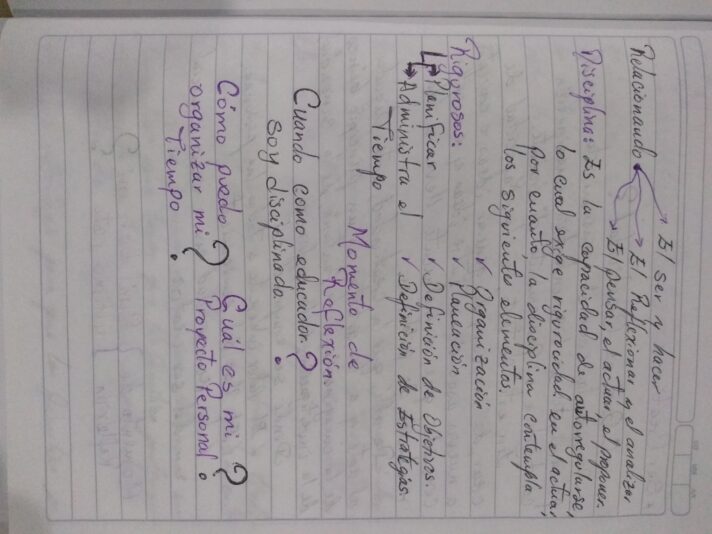 El ser y hacer
Relacionando El Reflexionar y el analizar
El pensar, el actuar, el proponer.
Disciplina: Es la capacidad de autorregularse,
lo cual exige rigurocidad en el actuar,
por cuanto, la disciplina contempla
los siguiente elementos.
✓ Organización
Rigurosos: ✓ Planeación
Planificar ✓ Definición de Objetivos.
Administra el ✓ Definición de Estrategias.
Tiempo
Momento de
Reflexión
Cuando como educador?
soy disciplinado.
Cómo puedo ? Cuál es mi ?
organizar mi Proyecto Personal
Tiempo